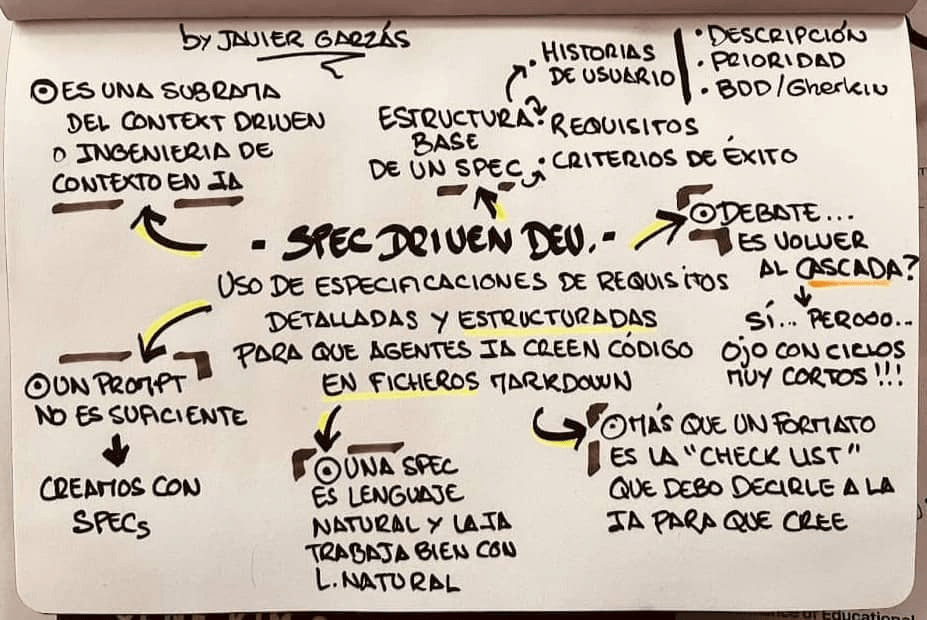 by JAVIER GARZÁS
ES UNA SUBRAMA
DEL CONTEXT DRIVEN
O INGENIERIA DE
CONTEXTO EN IA
ESTRUCTURA
BASE
DE UN SPEC
• HISTORIAS
DE USUARIO
• DESCRIPCIÓN
• PRIORIDAD
• BDD/Gherkin
• REQUISITOS
• CRITERIOS DE ÉXITO
- SPEC DRIVEN DEV. -
USO DE ESPECIFICACIONES DE REQUISITOS
DETALLADAS Y ESTRUCTURADAS
PARA QUE AGENTES IA CREEN CÓDIGO
EN FICHEROS MARKDOWN
DEBATE...
ES VOLVER
AL CASCADA?
SÍ... PEROOO...
OJO CON CICLOS
MUY CORTOS!!!
UN PROMPT
NO ES SUFICIENTE
CREAMOS CON
SPECs
UNA SPEC
ES LENGUAJE
NATURAL Y LA IA
TRABAJA BIEN CON
L. NATURAL
MÁS QUE UN FORMATO
ES LA "CHECK LIST"
QUE DEBO DECIRLE A LA
IA PARA QUE CREE
of Educational